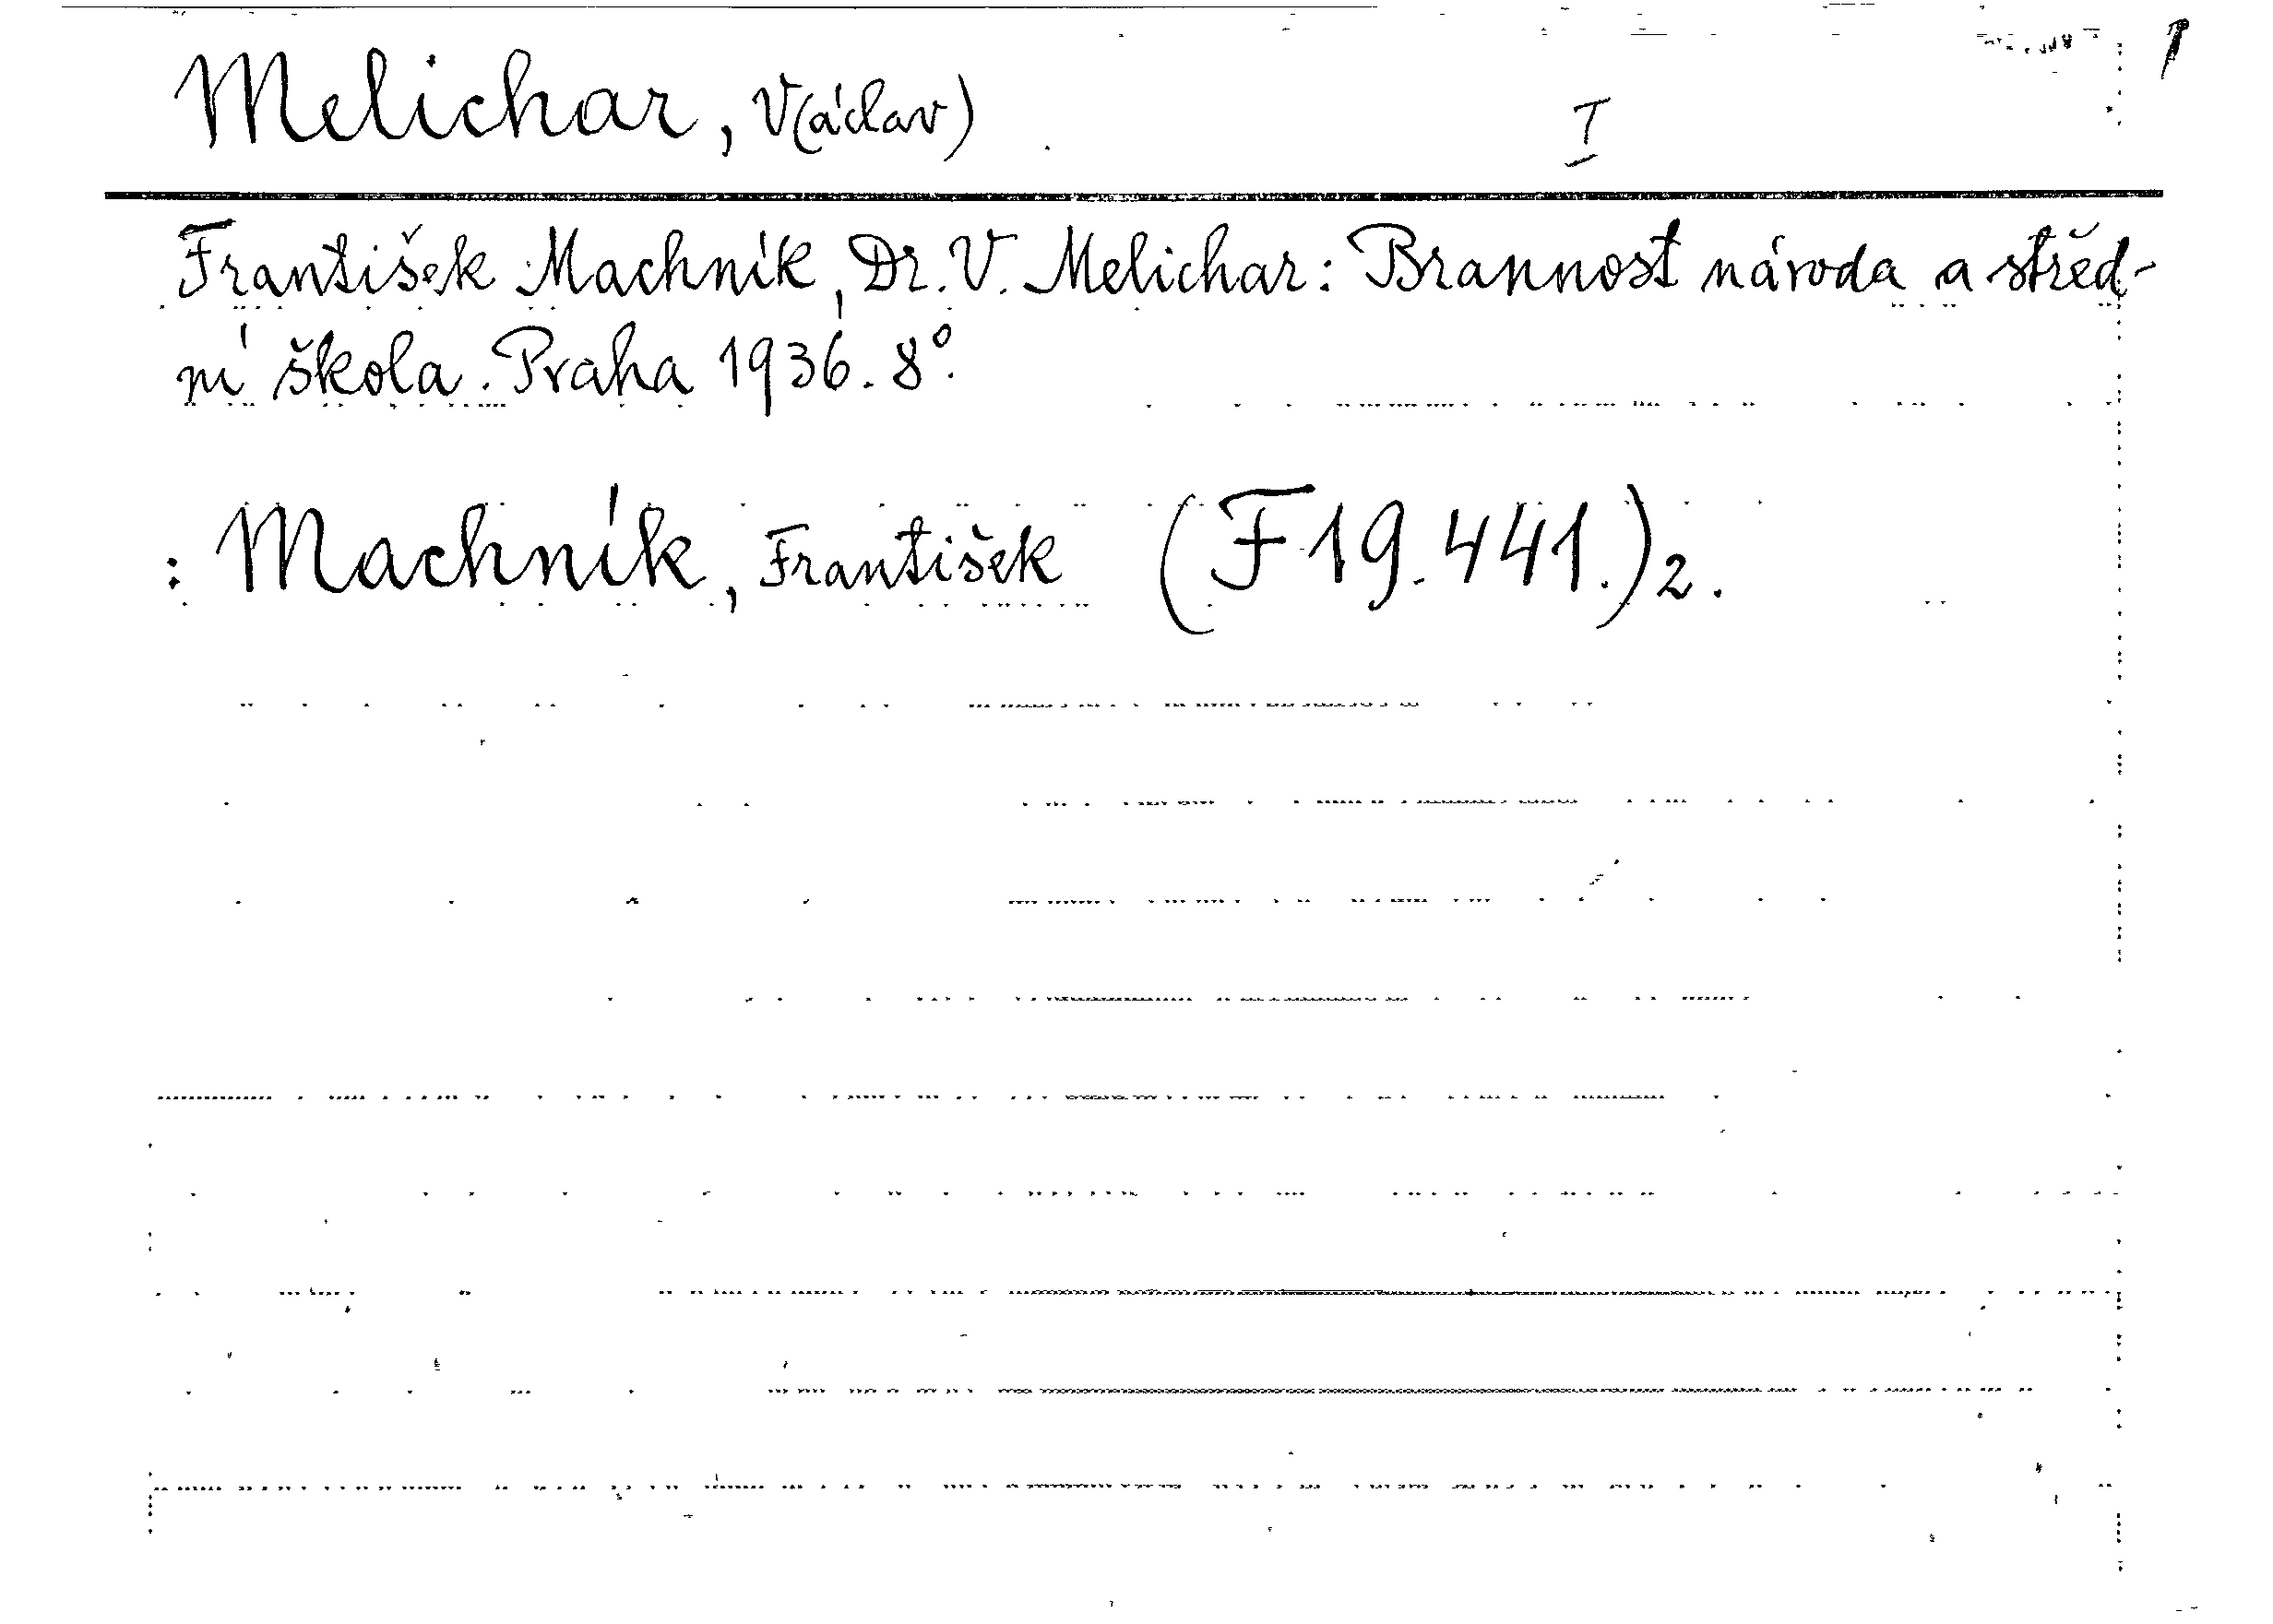 Melichar, V(áclav) I
František Machník, Dr. V. Melichar: Brannost národa a střed-
ní škola. Praha 1936. 8°.
: Machník, František (F 19.441.)2.